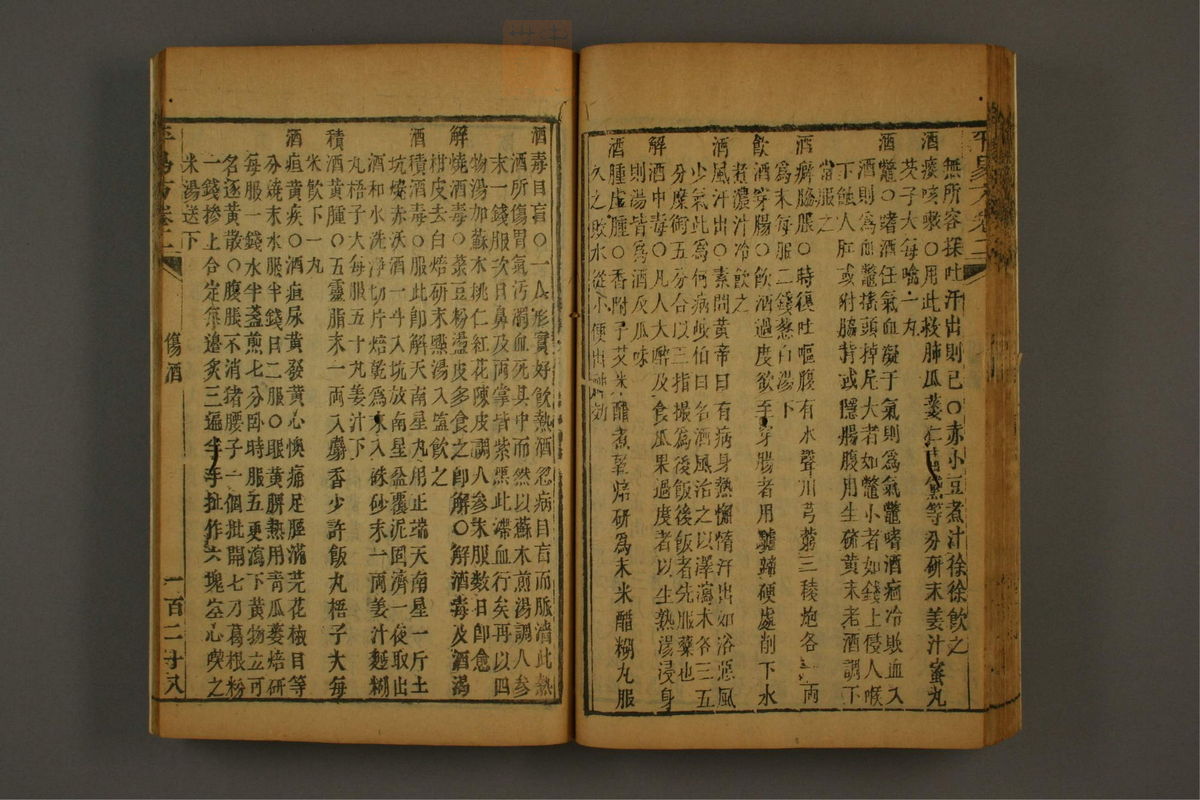 無所容探吐汗出則已〇赤小豆煮汁徐徐飲之
酒痰咳嗽〇用此救肺瓜蔞仁青黛等分研末姜汁蜜丸
芡子大每噙一丸
酒鼈〇嗜酒任氣血凝于氣則爲氣鼈嗜酒痼冷敗血入
酒則爲血鼈搖頭掉尾大者如鼈小者如錢上侵人喉
下蝕人肛或附脇背或隱腸腹用生硫黃末老酒調下
常服之
酒癖脇脹〇時復吐嘔腹有水聲川芎藭三稜炮各一兩
爲末每服二錢葱白湯下
飲酒穿腸〇飲酒過度欲至穿腸者用驢蹄硬處削下水
煮濃汁冷飲之
酒風汗出〇素問黃帝曰有病身熱懈惰汗出如浴惡風
少氣此爲何病岐伯曰名酒風治之以澤瀉朮各三五
分麋銜五分合以三指撮爲後飯後飯者先服藥也
解酒中毒〇凡人大醉及食瓜果過度者以生熟湯浸身
則湯皆爲酒及瓜味
酒腫虛腫〇香附子艾米醋煮乾焙研爲末米醋糊丸服
久之敗水從小便出神効
酒毒目盲〇一人形實好飲熱酒忽病目盲而脈濇此熱
酒所傷胃氣汚濁血死其中而然以蘇木煎湯調人參
末一錢服次日鼻及兩掌皆紫黑此滯血行矣再以四
物湯加蘇木桃仁紅花陳皮調人參末服數日即愈
解燒酒毒〇菉豆粉盪皮多食之即解〇解酒毒及酒渴
柑皮去白焙研末點湯入鹽飲之
酒積酒毒〇服此即解天南星丸用正端天南星一斤土
坑燒赤沃酒一斗入坑放南星盆覆泥固濟一夜取出
酒和水洗淨切片焙乾爲末入硃砂末一兩姜汁麪糊
丸梧子大每服五十丸姜汁下
積酒黃腫〇五靈脂末一兩入麝香少許飯丸梧子大每
米飲下一丸
酒疸黃疾〇酒疸尿黃發黃心懊痛足脛滿芫花椒目等
分燒末水服半錢日二服〇眼黃胖熱用青瓜蔞焙研
每服一錢水半盞煎七分臥時服五更瀉下黃物立可
名逐黃散〇腹脹不消猪腰子一個批開七刀葛根粉
一錢摻上合定每邊炙三遍半手扯作六塊空心喫之
米湯送下
傷酒
一百二十又